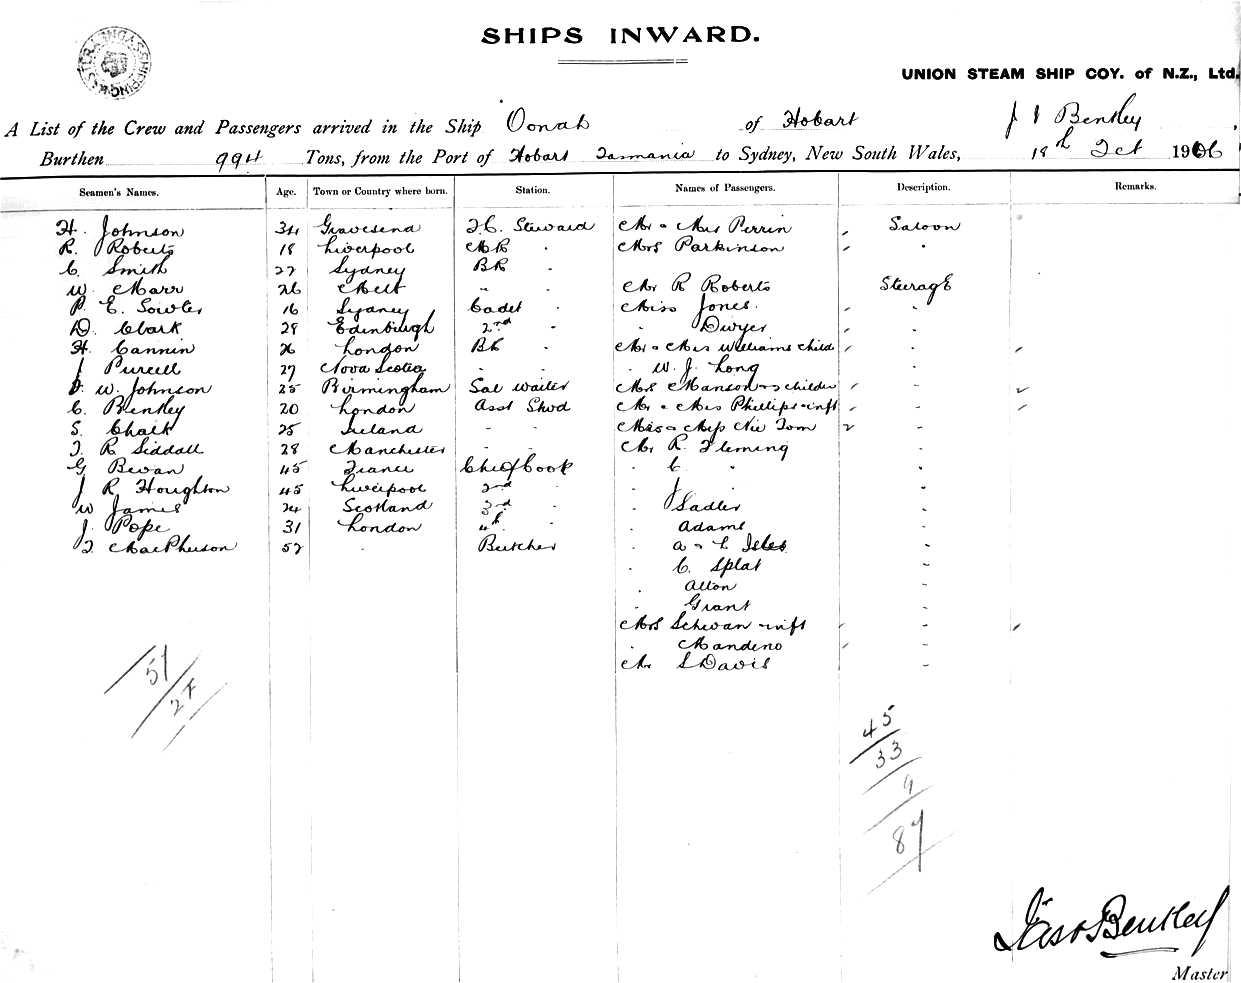 SHIPS INWARD.
UNION STEAM SHIP COY. of N.Z., Ltd.
A List of the Crew and Passengers arrived in the Ship Oonah of Hobart J Bentley,
Burthen 994 Tons, from the Port of Hobart Tasmania to Sydney, New South Wales, 18th Oct 1906
Seamen's Names. Age. Town or Country where born. Station. Names of Passengers. Description. Remarks.
H. Johnson 34 Gravesend F.C. Steward Mr & Mrs Perrin Saloon
R. Roberts 18 Liverpool Mrs Parkinson "
C. Smith 27 Sydney BR "
W. Marr 26 Melb " " Mr R Roberts Steerage
P. E. Sowter 16 Sydney Cadet " Miss Jones "
D. Clark 28 Edinburgh 2nd " " Dwyer "
H. Cannin 26 London BR " Mr & Mrs Williams & child "
J Purcell 27 Nova Scotia " " " W. J. Long "
W. Johnson 25 Birmingham Sal waiter Mrs Manson & 3 children "
C. Bentley 20 London Asst Stwd Mr & Mrs Phillips & inft "
S. Chalk 25 Ireland " " Tom 2 "
T. R Siddall 28 Manchester " " Mr R. Fleming "
G Bevan 45 France Chief Cook " C. " "
J R Houghton 45 Liverpool 2nd " " J "
W James 24 Scotland 3rd " " Sadler "
J. Pope 31 London 4th " " Adams "
T. MacPherson 52 " Butcher " A & L Isles "
" C. Splat "
" Alton "
" Grant "
Mrs Schwan & inft "
" Mandeno "
Mr S Davis "
51
27
45
33
9
87
Jas Bentley
Master